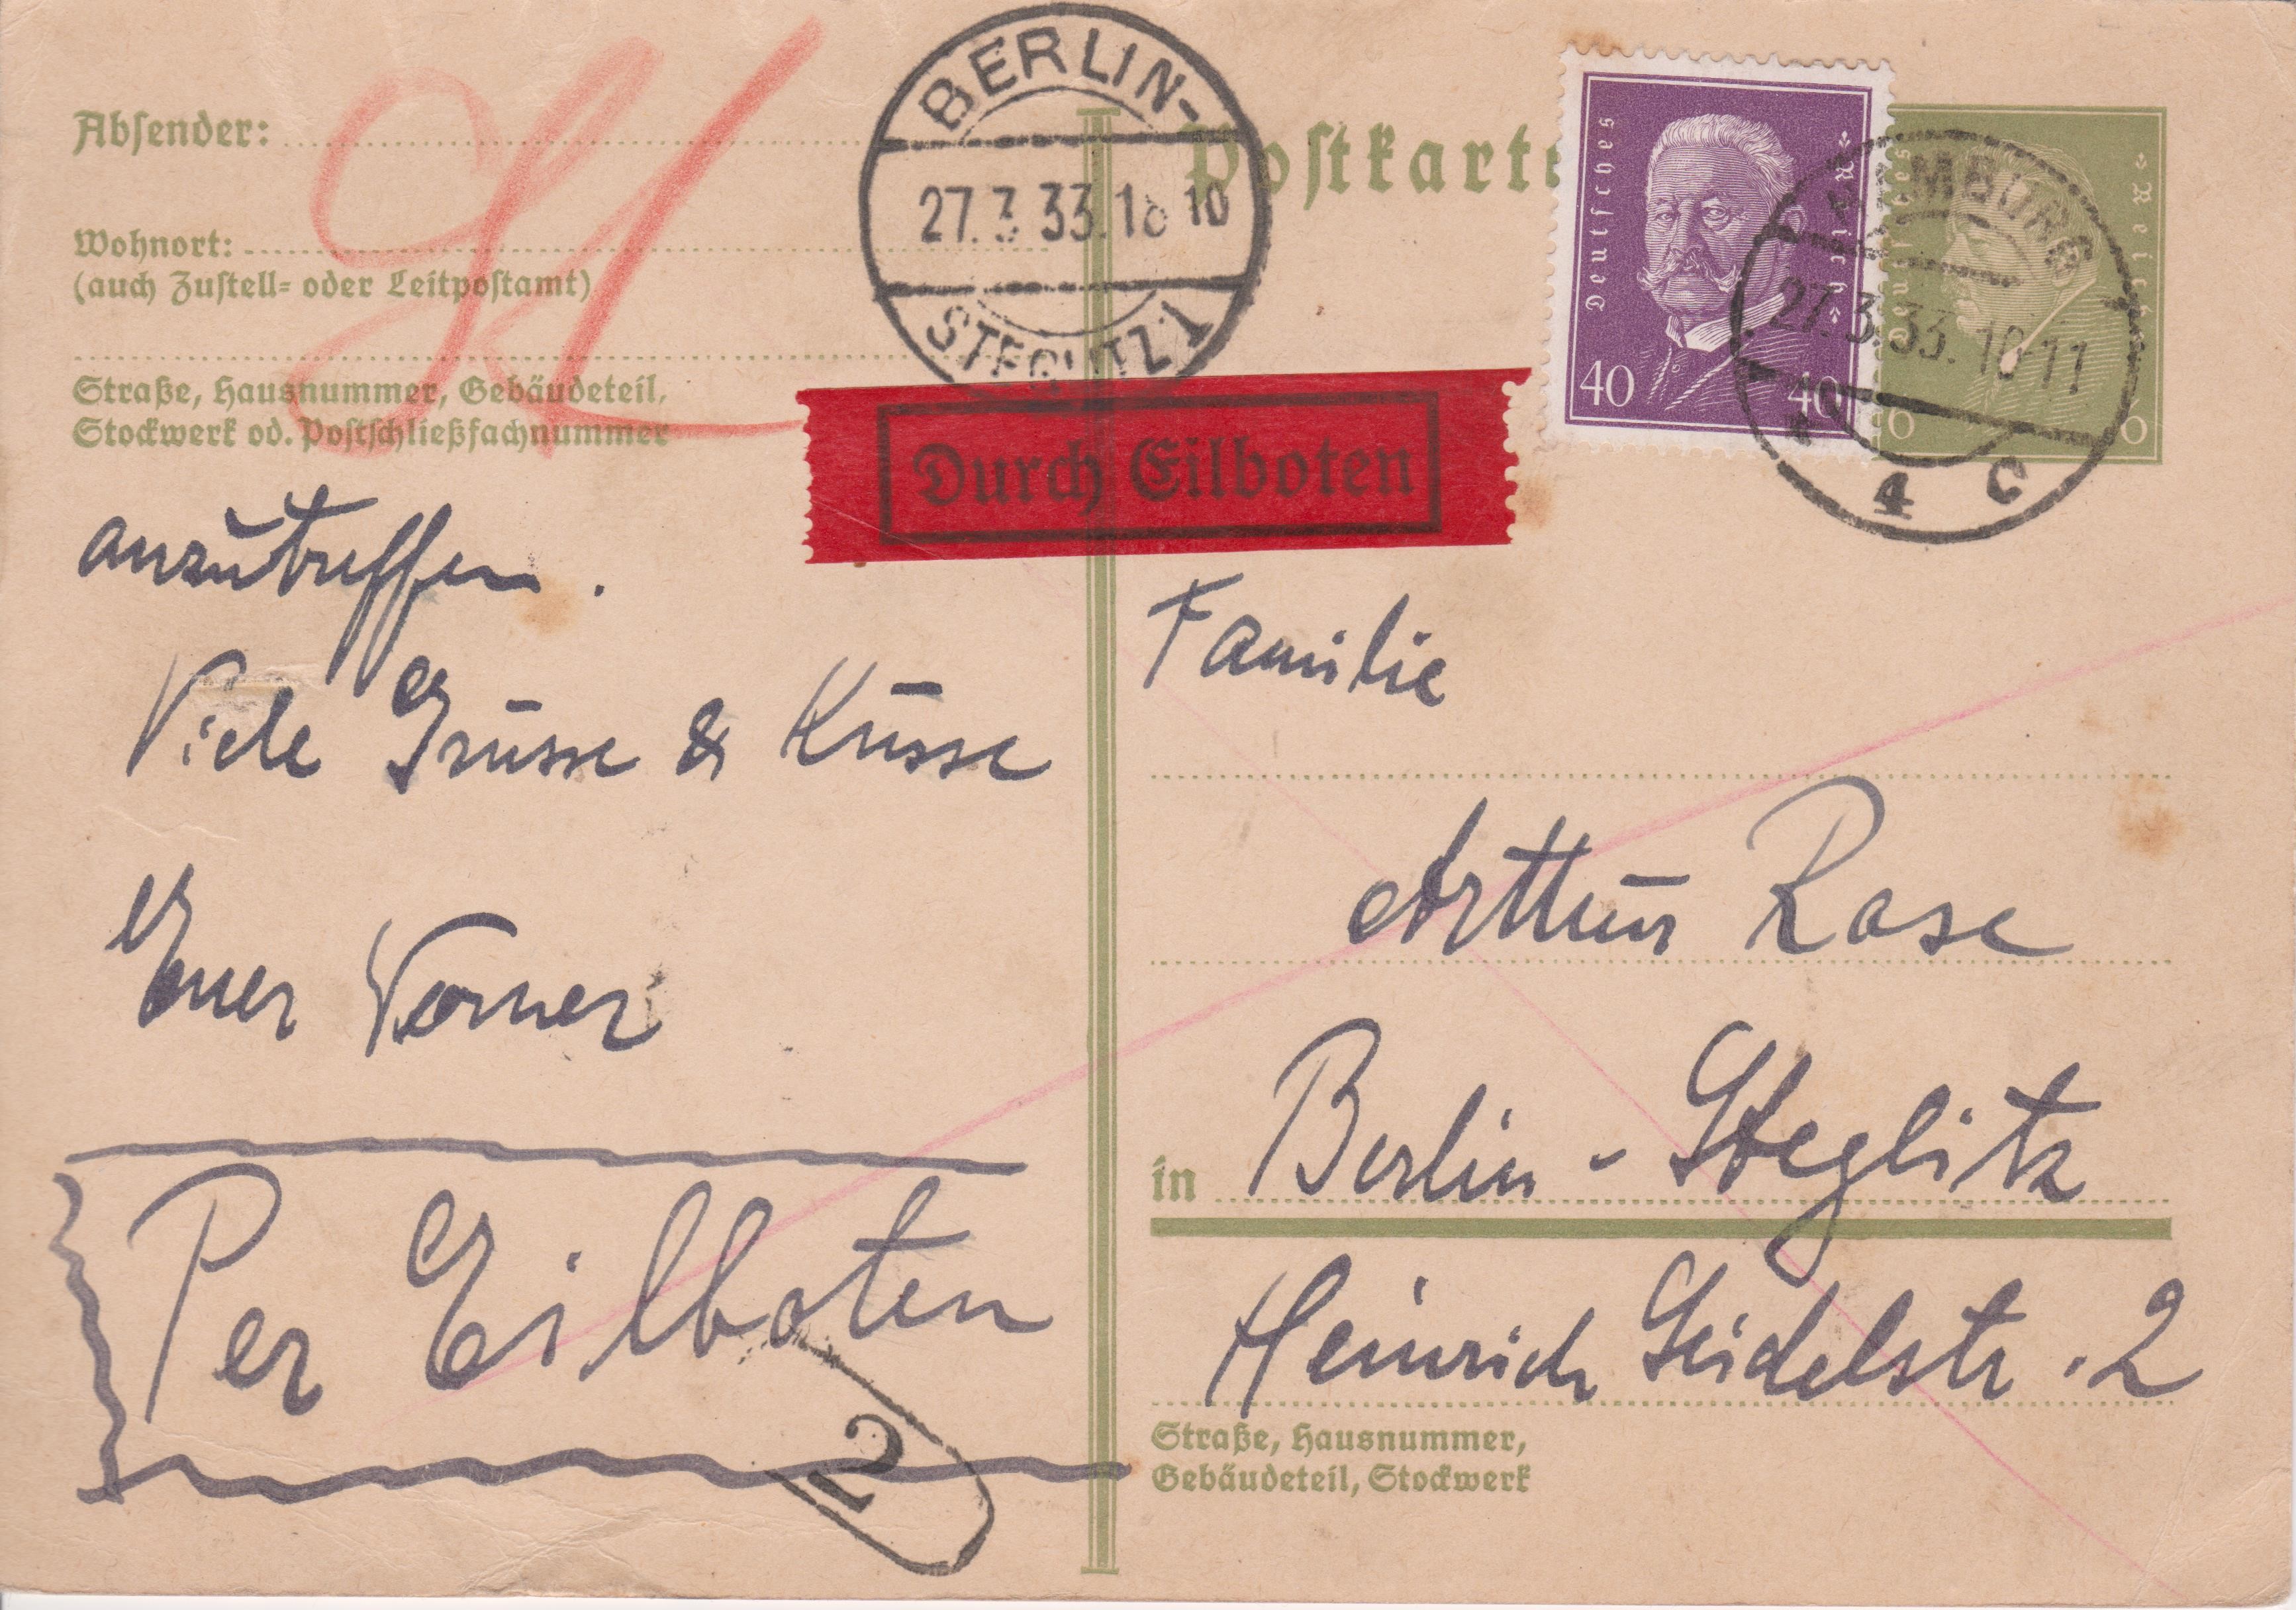 Absender:
Wohnort:
(auch Zustell- oder Leitpostamt)
Straße, Hausnummer, Gebäudeteil,
Stockwerk od. Postschließfachnummer
BERLIN-
27.3 33.18 10
STEGLITZ 1
Postkarte
Deutsches Reich
40 40
Deutsches Reich
6 6
HAMBURG
27.3.33.10-11
* 4 C
Durch Eilboten
anzutreffen.
Viele Grüsse & Küsse
Euer Werner
Per Eilboten
2
Familie
Arthur Rose
in Berlin-Steglitz
Heinrich Seidelstr. 2
Straße, Hausnummer,
Gebäudeteil, Stockwerk